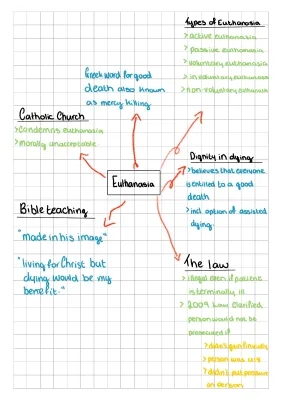 Types of Euthanasia
> active euthanasia
> passive euthanasia
> voluntary euthanasia
> involuntary euthanasia
> non-voluntary euthanasia
Greek word for good
death also known
as mercy killing
Catholic Church
> condemns euthanasia
> morally unacceptable
Euthanasia
Dignity in dying
> believes that everyone
is entitled to a good
death
> incl. option of assisted
dying.
Bible teaching
"made in his image"
"living for Christ but
dying would be my
benefit."
The law
> illegal even if patient
is terminally ill
> 2009 law clarified
person would not be
prosecuted if
> didn't gain financially
> person was u18
> didn't put pressure
on person